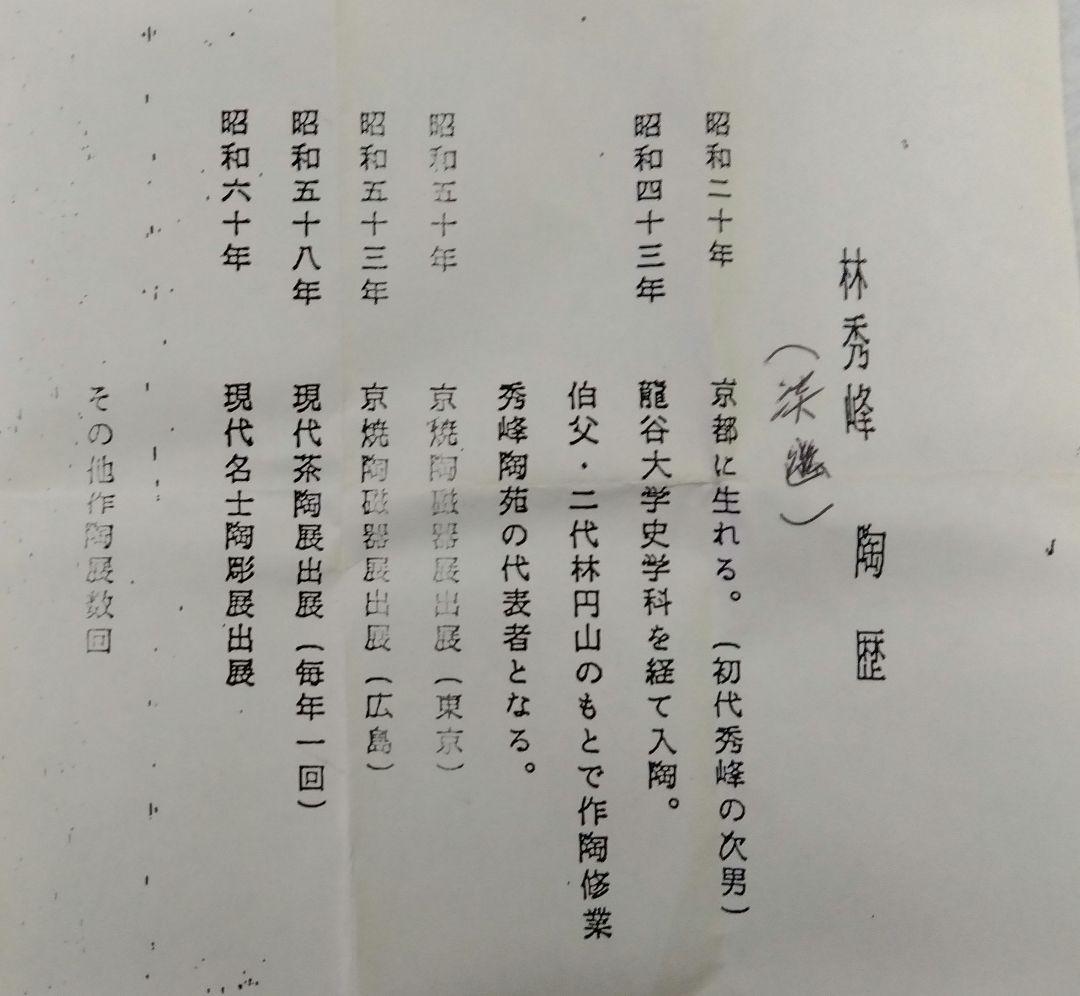 林秀峰 陶歴
昭和二十年 京都に生れる。(初代秀峰の次男)
昭和四十三年 龍谷大学史学科を経て入陶。
伯父・二代林円山のもとで作陶修業
秀峰陶苑の代表者となる。
昭和五十年 京焼陶磁器展出展(東京)
昭和五十三年 京焼陶磁器展出展(広島)
昭和五十八年 現代茶陶展出展(毎年一回)
昭和六十年 現代名士陶彫展出展
その他作陶展数回